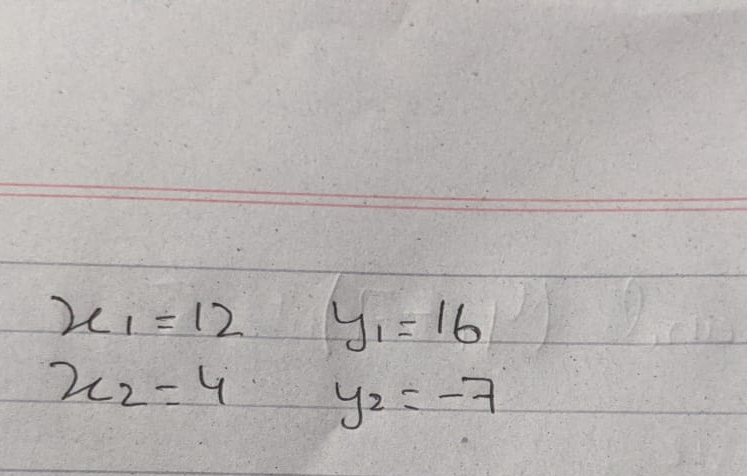 x₁ = 12 y₁ = 16
x₂ = 4 y₂ = -7